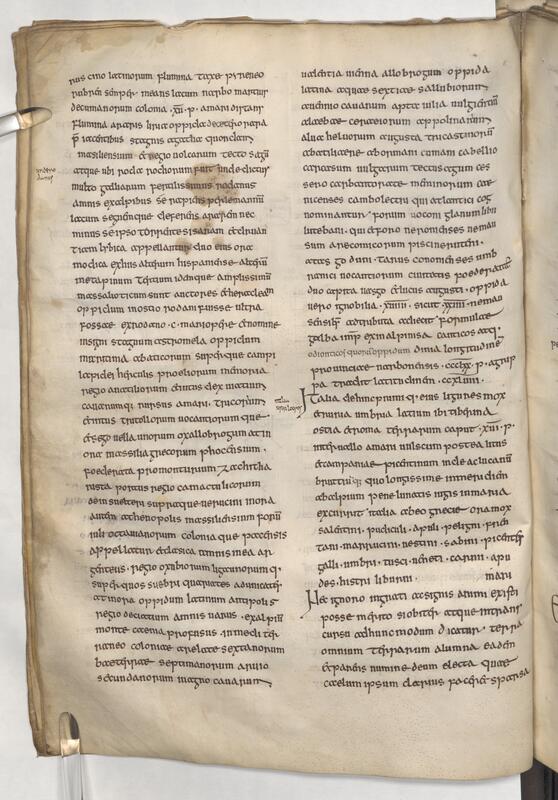 nus cino latinorum flumina taxe pyreneo
rubren semper means lacum narbo martiur
decumanorum colonia .xii. p. a mari distant
flumina araris liria oppida de cetero rara
p iacentibus stagnis agatha quondam
massiliensium et regio volcarum tecto sagu
atque ubi roda rochorum fuit unde dictur
multo galliarum fertilissimus rodanus
amnis ex alpibus se rapiens per lemannu
lacum segnemque deferens ararem nec
minus se ipso torrente sisaram et druan
ticam lybica appellantur duo eius ora
modica ex his alterum hispaniense alteru
metapinum tertium idemque amplissimu
massalioticum sunt auctores et heraclean
oppidum in ostio rodani fuisse ultra
fossae ex rodano .c. mari opere et nomine
insignes stagnum astromela oppidum
maritima abaticorum superque campi
lapidei herculis proeliorum memoria
regio anatiliorum et intus dex uatium
cauarumque rursus a mari tricorum
et intus tritollorum uocantiorum que
et sego uellaunorum ox allobrogum at in
ora massilia grecorum phocensium
foederata promonturium zao citha
rista portus regio camactulicorum
dein suelteri supraque uerucini in ora
autem athenopolis massiliensium foru
iuli octauianorum colonia que pacensis
appellatur et classica amnis in ea ar
genteus regio oxubiorum ligaunorum q.
super quos suebri quariates adunicates
at in ora oppidum latinum antipolis
regio deciatium amnis uarus ex alpiu
monte acema profusus in medi ter
raneo coloniae arelate sextanorum
baeterrae septimanorum arusio
secundanorum in agro cauarum
ualentia uienna allobrogum oppida
latina aquae sextiae salluuiorum
auennio cauarum apta iulia uulgientiu
alaebaece reiorum apollinarium
alba heluorum augusta tricastinoru
anatilia aeria bormani comani cabellio
carcasum uulgarum tectusagum ces
sero carbantorate meminorum cae
nicenses cambolectri qui atlantici cog
nominantur forum uoconi glanum libii
lutebani qui et foroneronienses nemau
sum arecomicorum piscinae ruteni
atas godum . tarusconienses umb
ranici uocontiorum ciuitatis foederatae
duo capita uasgo et lucus augusti . oppida
uero ignobilia . xuiiii . sicut . xxiiii . nemau
sensib; adtributa adiecit formulae
galba imp ex inalpinis auanticos atq.
odionticos quorum oppidum dinia longitudine
prouinciae narbonensis . ccclxx . p . agrip
pa tradit latitudinem . ccxluiii .
Italia dehinc primi q. eius ligures mox
etruria umbria latium ibi tiberina
ostia et roma terrarum caput . xui . p .
interuallo a mari uulscum postea litus
et campaniae picentinum inde ac lucanu
bruttiu q; quo longissime in meridiem
ab alpium pene lunatis iugis in maria
excurrit italia ab eo grecie ora mox
salentini . pudiculi . apuli . peligni . fren
tani . marrucini . uestini . sabini . picentes
galli . umbri . tusci . ueneti . carni . apu
des . histri liburni . mari
Nec ignoro ingrati ac segnis animi existi
posse merito si obiter atque in trans
cursu ad hunc modum dicatur . terra
omnium terrarum alumna eadem
et parens numine deum electa quae
caelum ipsum clarius faceret sparsa